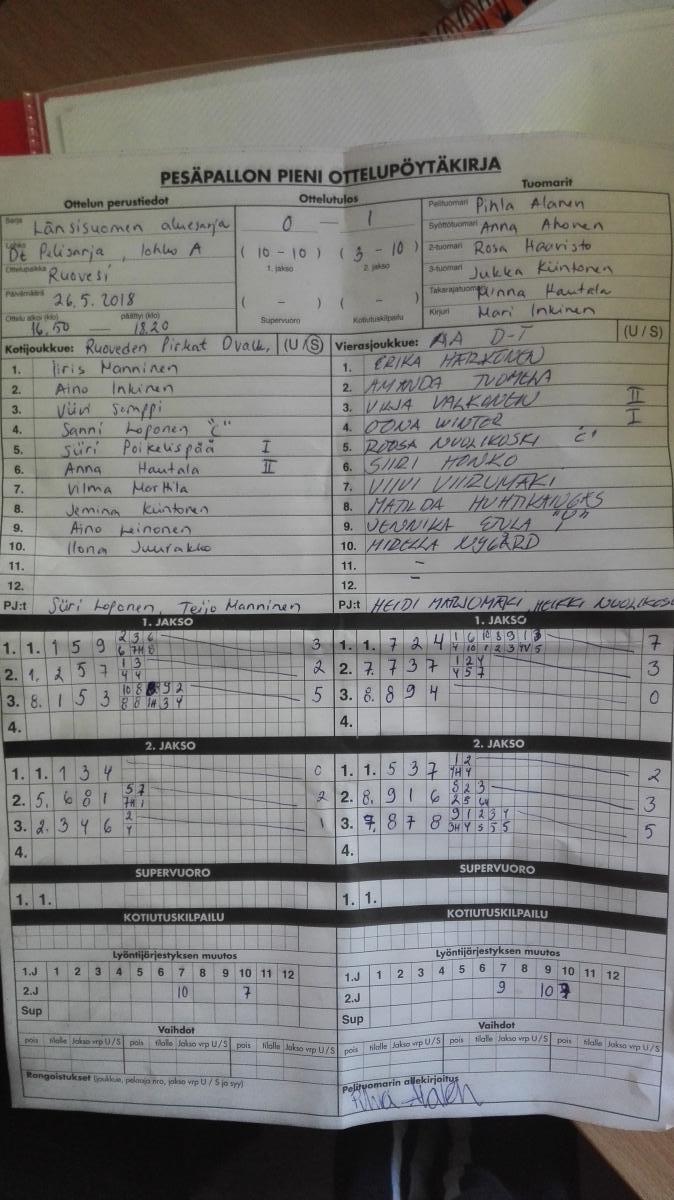 PESÄPALLON PIENI OTTELUPÖYTÄKIRJA
Ottelun perustiedot Ottelutulos Tuomarit
Sarja Länsisuomen aluesarja
Lohko Dt Pelisarja, lohko A
Ottelupaikka Ruovesi
Päivämäärä 26.5. 2018
Ottelu alkoi (klo) päättyi (klo)
16.50 — 18.20
0 — 1
(10 - 10) (3 - 10)
1. jakso 2. jakso
( - ) ( - )
Supervuoro Kotiutuskilpailu
Pelituomari Pihla Alanen
Syöttötuomari Anna Ahonen
2-tuomari Rosa Haavisto
3-tuomari Jukka Kiintonen
Takarajatuomari Minna Hautala
Kirjuri Mari Inkinen
Kotijoukkue: Ruoveden Pirkat (U/S)
1. Iiris Manninen
2. Aino Inkinen
3. Viivi Somppi
4. Sanni Loponen "C"
5. Siiri Poikelispää I
6. Anna Hautala II
7. Vilma Marttila
8. Jemina Kiintonen
9. Aino Leinonen
10. Ilona Juurakko
11.
12.
PJ:t Siiri Loponen, Teijo Manninen
Vierasjoukkue: AA D-T (U/S)
1. ERIKA HÄRKÖNEN
2. AMANDA TUOMELA
3. VILJA VALKONEN II
4. OONA WINTER I
5. ROOSA NUOLIKOSKI C
6. SIIRI HONKO
7. VIIVI VIIRUMÄKI
8. MATILDA HUHTIKANGAS
9. JENNIKA
10. MIRELLA NYGÅRD
11. -
12. -
PJ:t HEIDI MARJOMÄKI, HEIKKI NUOLIKOSKI
1. JAKSO
1. 1. 1 5 9 3
2. 1. 2 5 7 1 3 4 4 2
3. 8. 1 5 3 5
4.
1. JAKSO
1. 1. 7 2 4 7
2. 7. 7 3 7 1 2 4 4 5 7 3
3. 8. 8 9 4 0
4.
2. JAKSO
1. 1. 1 3 4 0
2. 5. 6 8 1 5 7 7H 1 2
3. 2. 3 4 6 2 4 1
4.
2. JAKSO
1. 1. 5 3 7 1 2 4H 4 2
2. 8. 9 1 6 8 2 3 3
3. 7. 8 7 8 9 1 2 3 4 3H 4 5 5 5 5
4.
SUPERVUORO
1. 1.
SUPERVUORO
1. 1.
KOTIUTUSKILPAILU
KOTIUTUSKILPAILU
Lyöntijärjestyksen muutos
1.J 1 2 3 4 5 6 7 8 9 10 11 12
2.J 10 7
Sup
Lyöntijärjestyksen muutos
1.J 1 2 3 4 5 6 7 8 9 10 11 12
2.J 9 10 7
Sup
Vaihdot
pois tilalle Jakso vrp U/S pois tilalle Jakso vrp U/S pois tilalle Jakso vrp U/S
Vaihdot
pois tilalle Jakso vrp U/S pois tilalle Jakso vrp U/S pois tilalle Jakso vrp U/S
Rangaistukset (joukkue, pelaaja nro, jakso vrp U / S ja syy)
Pelituomarin allekirjoitus